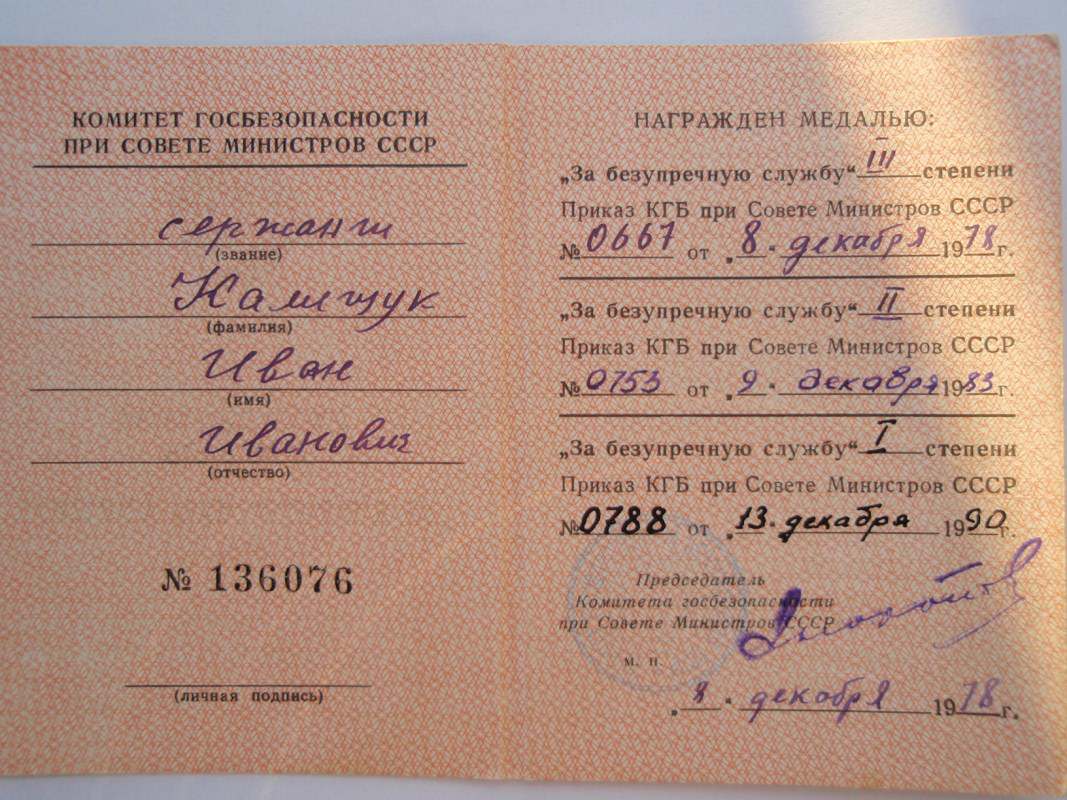 КОМИТЕТ ГОСБЕЗОПАСНОСТИ
ПРИ СОВЕТЕ МИНИСТРОВ СССР
сержант
(звание)
Калищук
(фамилия)
Иван
(имя)
Иванович
(отчество)
№ 136076
(личная подпись)
НАГРАЖДЕН МЕДАЛЬЮ:
„За безупречную службу“ III степени
Приказ КГБ при Совете Министров СССР
№ 0667 от „8“ декабря 1978 г.
„За безупречную службу“ II степени
Приказ КГБ при Совете Министров СССР
№ 0753 от „9“ декабря 1983 г.
„За безупречную службу“ I степени
Приказ КГБ при Совете Министров СССР
№ 0788 от „13“ декабря 1990 г.
Председатель
Комитета госбезопасности
при Совете Министров СССР
м. п.
„8“ декабря 1978 г.